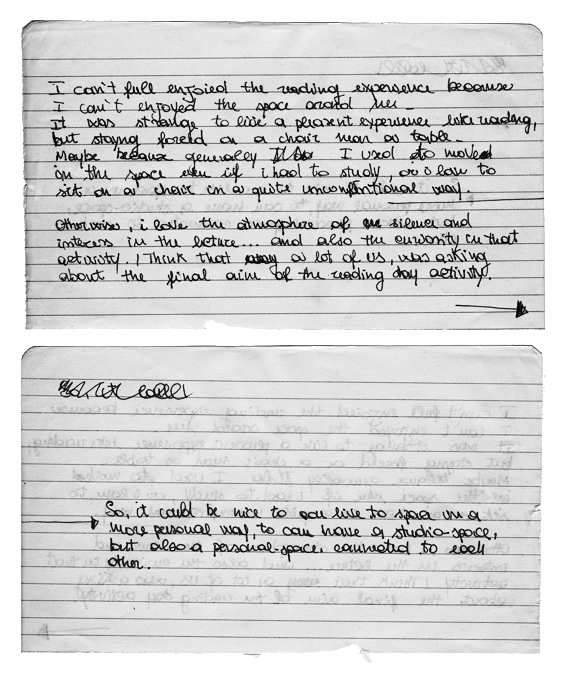 I can't full enjoied the reading experience because
I can't enjoyed the space around me.
It was strange to live a pleasent experience like reading,
but stayng forced on a chair near a table.
Maybe because generally I used to moved
in the space even if i had to study, or also to
sit on a chair in a quite unconventional way.
Otherwise, i love the atmosphere of silence and
interess in the lecture... and also the curiosity in that
activity. I think that a lot of us, was asking
about the final aim of the reading day activity.
So, it could be nice to live to space in a
more personal way, to can have a studio-space,
but also a personal-space, connected to each
other.